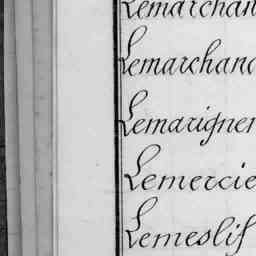 Lemarchan
Lemarchand
Lemarigner
Lemercie
Lemeslif